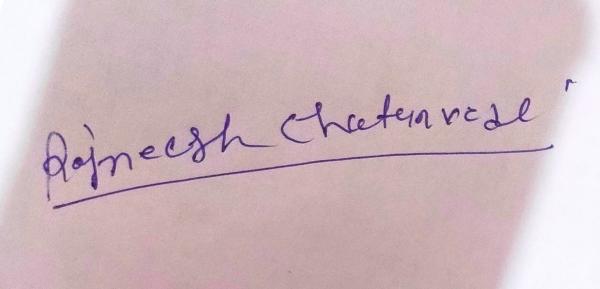 Rajneesh Chaturvedi